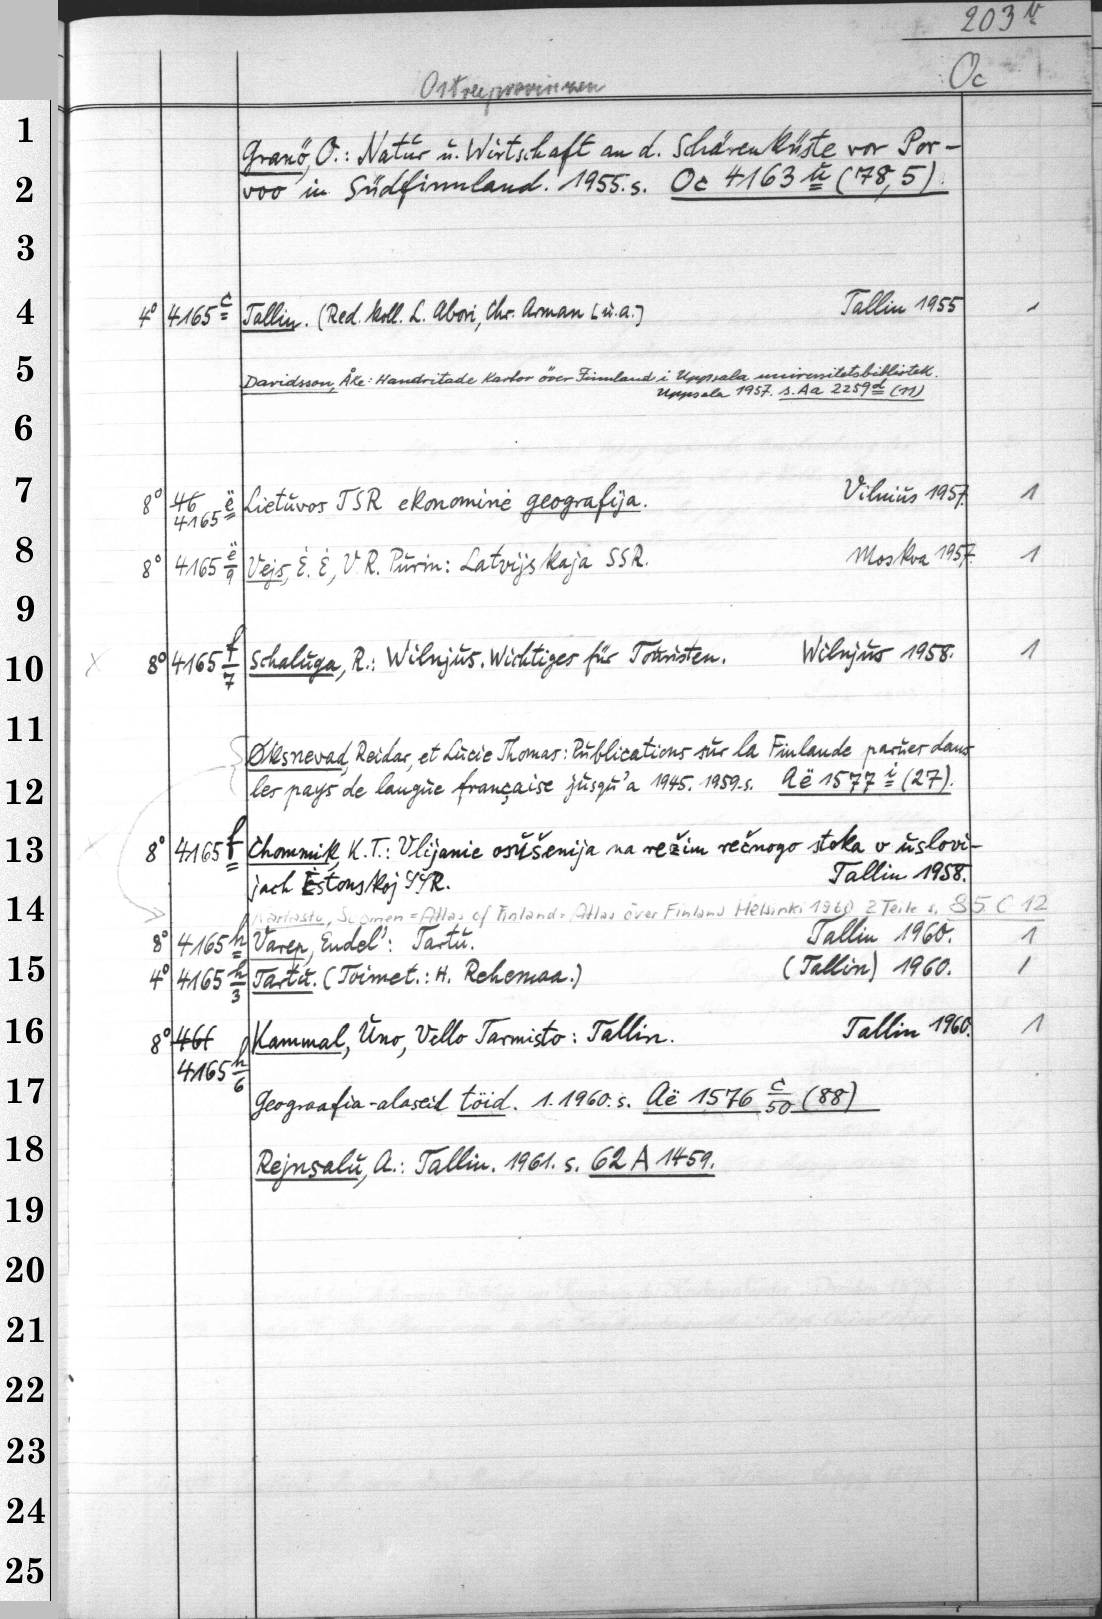 203 v
Oc
Ostseeprovinzen
1
Granö, O.: Natur u. Wirtschaft an d. Schärenküste vor Por-
2
voo in Südfinnland. 1955. s. Oc 4163 ü (78,5).
3
4
4° 4165 c Tallin. (Red. koll. L. Abori, Chr. Arman [u.a.] Tallin 1955 1
5
Davidsson, Åke: Handritade kartor över Finnland i Uppsala universitetsbibliotek.
Uppsala 1957. s. Aa 2259 d (11)
6
7
8° 46 4165 ë Lietuvos TSR ekonominė geografija. Vilnius 1957. 1
8
8° 4165 ë/9 Vejs, Ė. Ė, V. R. Purin: Latvijskaja SSR. Moskva 1957. 1
9
10
8° 4165 f/7 Schaluga, R.: Wilnjus. Wichtiges für Touristen. Wilnjus 1958. 1
11
Øksnevad, Reidar, et Lucie Thomas: Publications sur la Finlande parues dans
12
les pays de langue française jusqu'a 1945. 1959. s. Aë 1577 i (27).
13
8° 4165 f Chommik, K. T.: Vlijanie osušenija na režim rečnogo stoka v uslovi-
jach Ėstonskoj SSR. Tallin 1958.
14
Kartasto, Suomen = Atlas of Finland = Atlas över Finland Helsinki 1960 2 Teile s. 85 C 12
8° 4165 h Varep, Endel': Tartu. Tallin 1960. 1
15
4° 4165 h/3 Tartu. (Toimet.: H. Rehemaa.) (Tallin) 1960. 1
16
8° 466 Kammal, Uno, Vello Tarmisto: Tallin. Tallin 1960. 1
4165 h/6
17
Geograafia-alaseid töid. 1. 1960. s. Aë 1576 c/50 (88)
18
Rejnsalu, A.: Tallin. 1961. s. 62 A 1459.
19
20
21
22
23
24
25